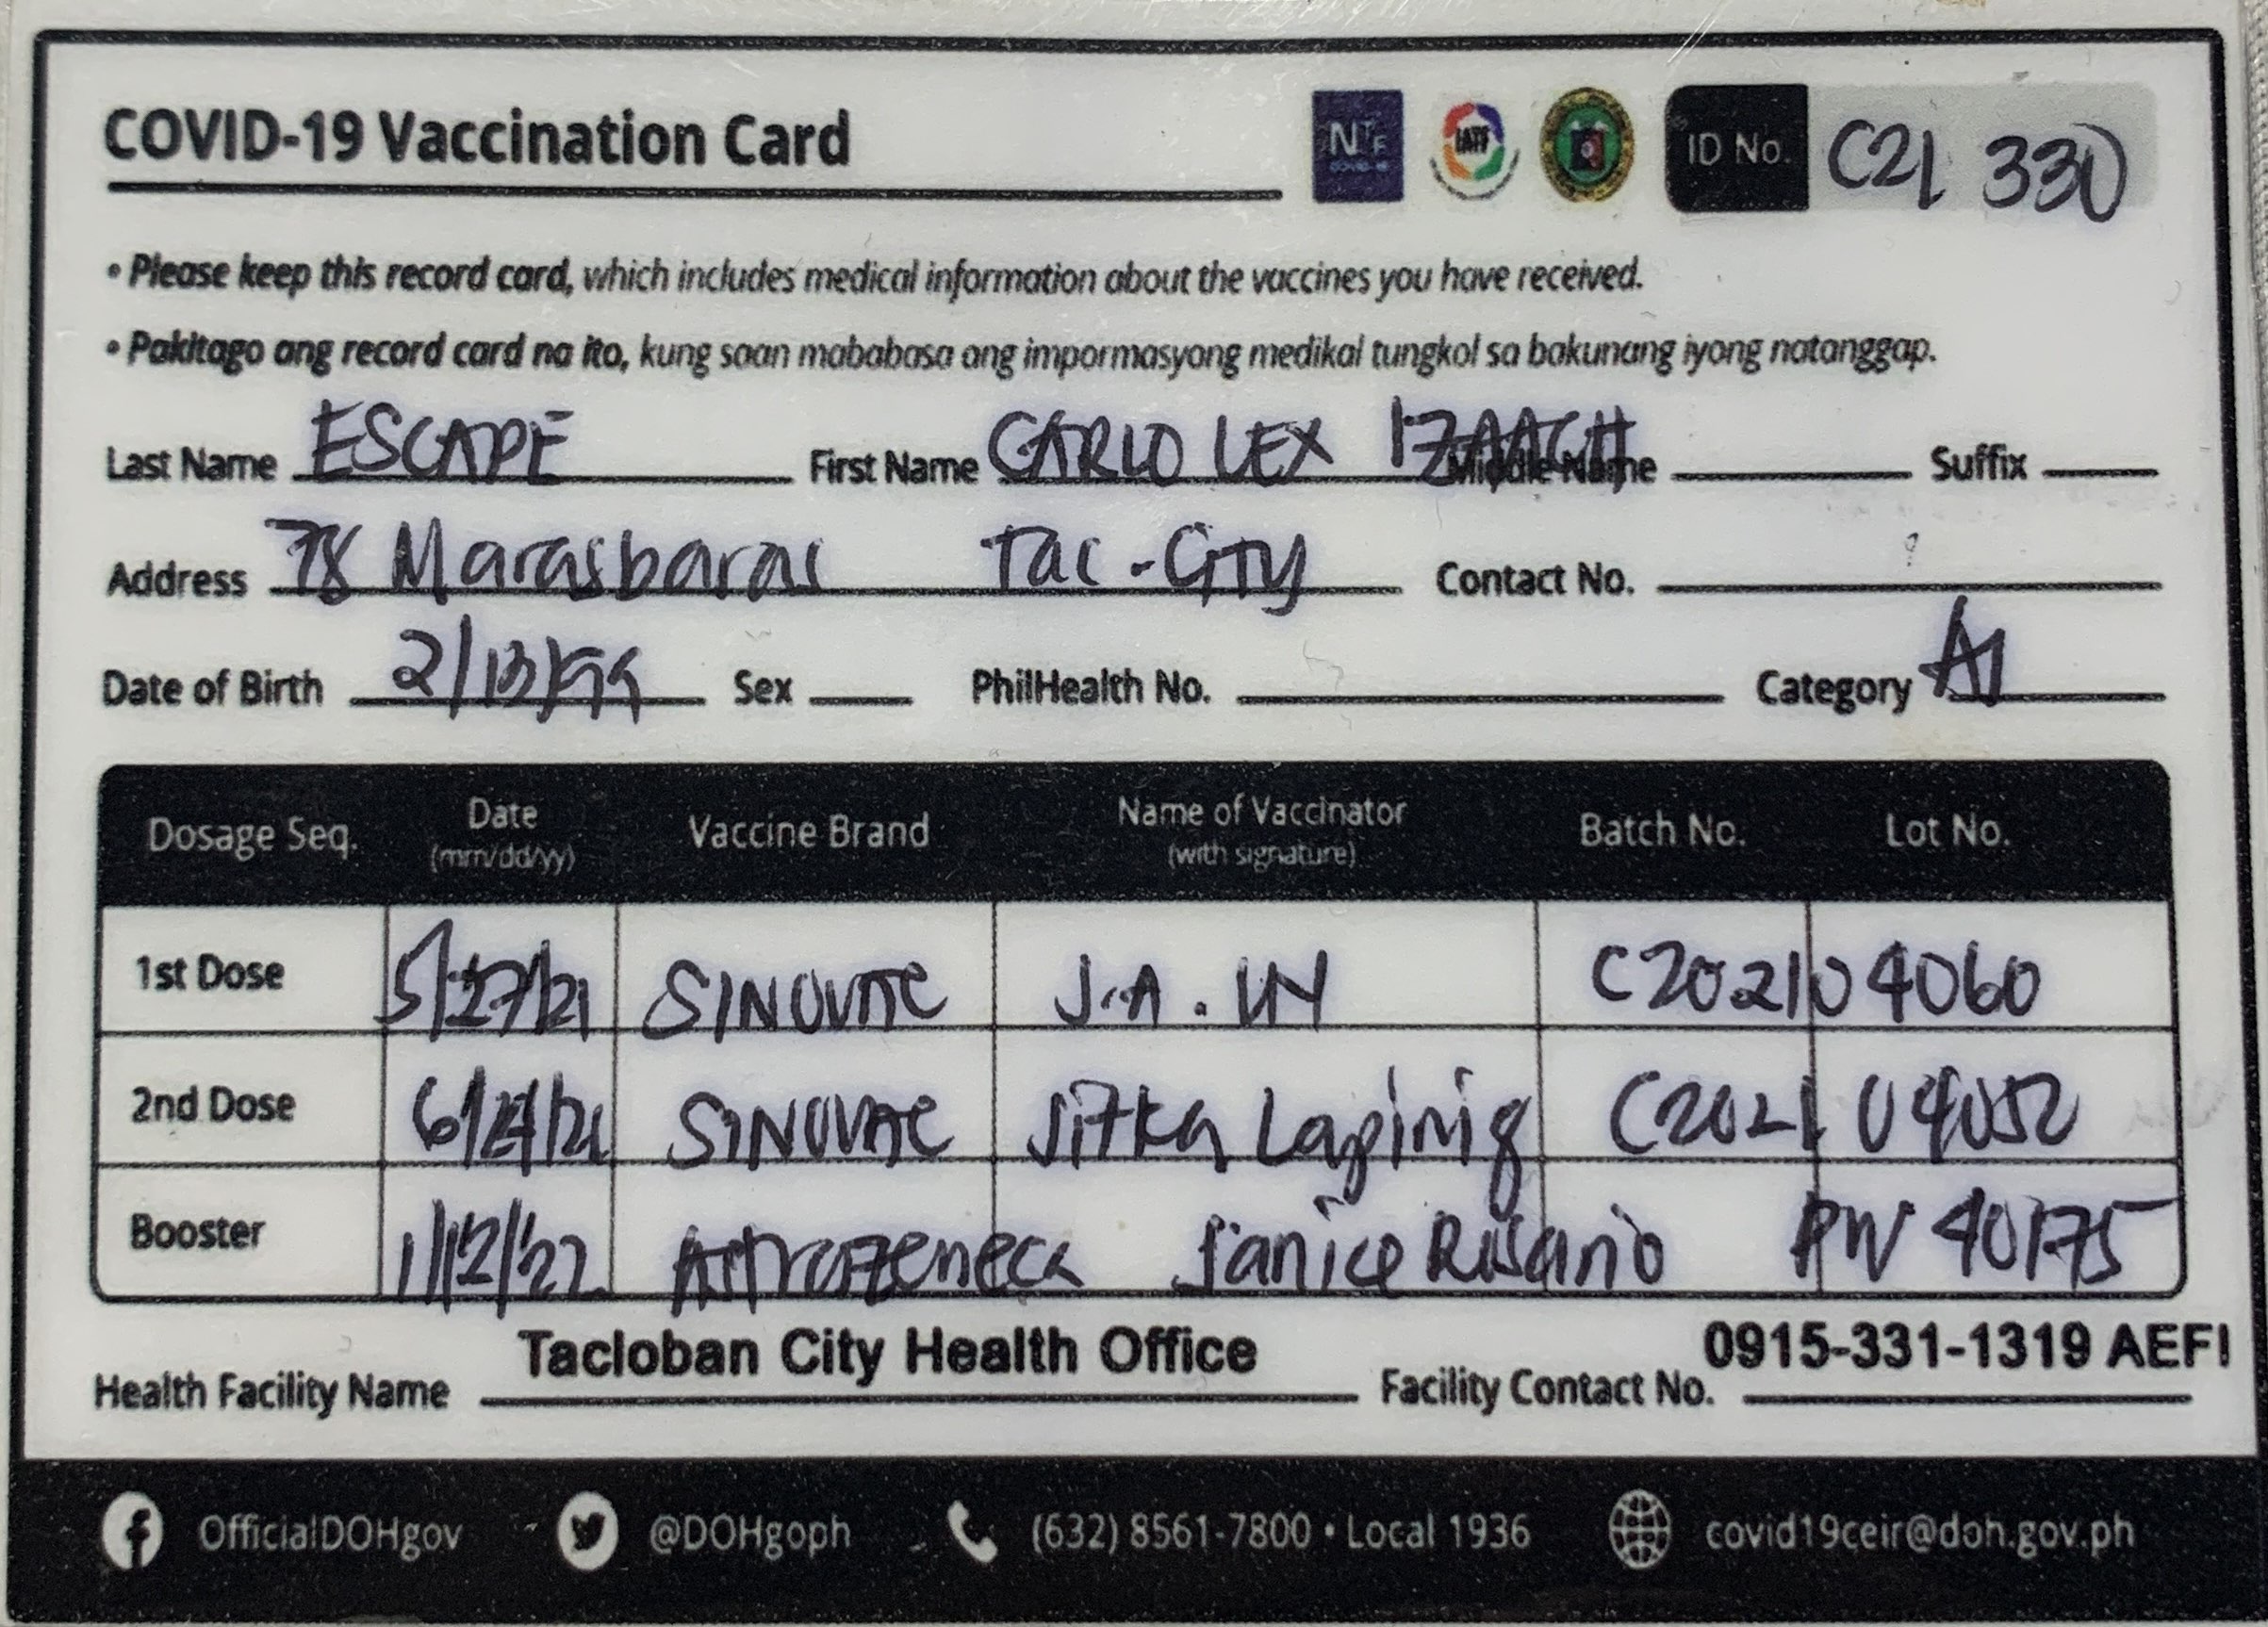 COVID-19 Vaccination Card NTF COVID-19 IATF ID No. C21 330
• Please keep this record card, which includes medical information about the vaccines you have received.
• Pakitago ang record card na ito, kung saan mababasa ang impormasyong medikal tungkol sa bakunang iyong natanggap.
Last Name ESCAPE First Name CARLO LEX IZAACH Middle Name Suffix
Address 78 Marasbaras Tac-City Contact No.
Date of Birth 2/13/99 Sex PhilHealth No. Category A1
Dosage Seq. Date (mm/dd/yy) Vaccine Brand Name of Vaccinator (with signature) Batch No. Lot No.
1st Dose 5/27/21 SINOVAC J.A. UY C202104060
2nd Dose SINOVAC Jitka Lapinig C2021 04052
Booster 1/12/22 Astrazeneca Janice Rosario PW 40175
Health Facility Name Tacloban City Health Office Facility Contact No. 0915-331-1319 AEFI
OfficialDOHgov @DOHgoph (632) 8561-7800 • Local 1936 covid19ceir@doh.gov.ph